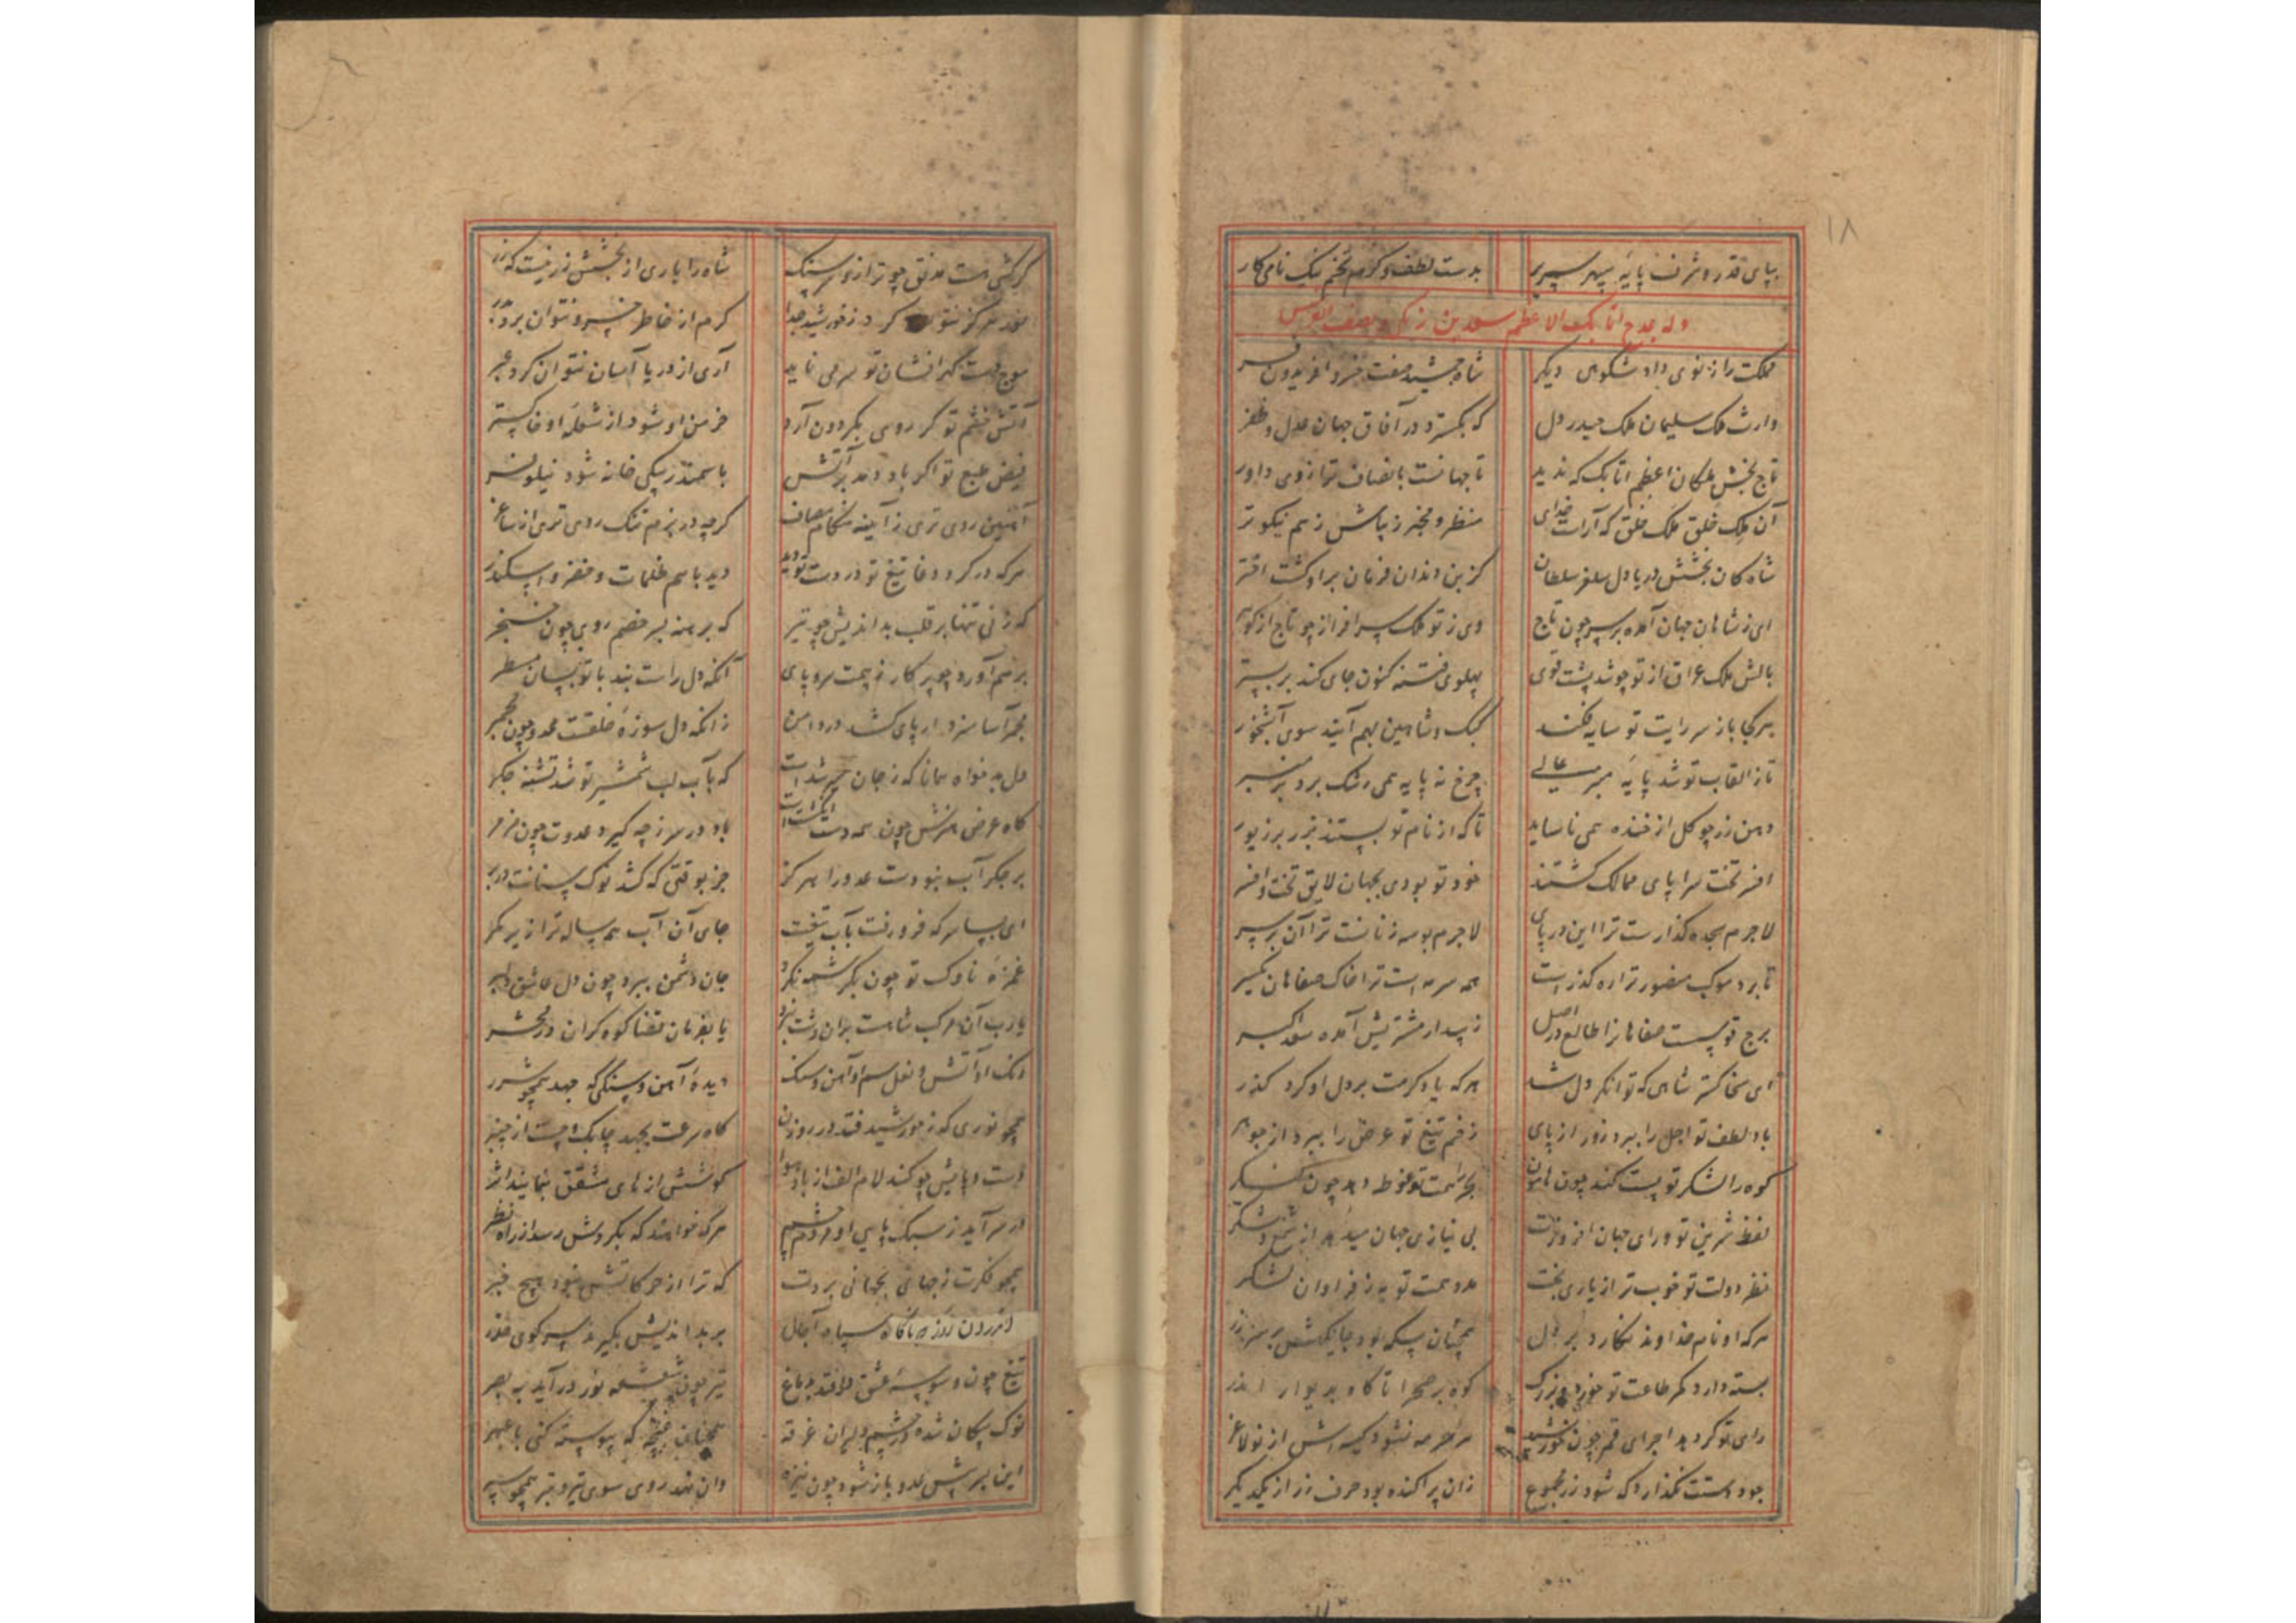 ۱۸
بپای قدر و شرف پایهٔ سپهر سپر بدست لطف و کرم تخم نیک نامی کار
وله یمدح اتابک الاعظم سعد بن زنگی و یصف الفرس
مملکت را ز نوی داد شکوهی دیگر شاه جمشید صفت خسرو افریدون فر
وارث ملک سلیمان ملک حیدر دل که بگسترد در آفاق جهان عدل و ظفر
تاج بخش ملکان اعظم اتابک که ندید تا جهانست بانصاف ترا زوی داور
آن ملک خلق ملک خلق که آراست خدای منظر و مخبر زیباش ز هم نیکوتر
شاه کان بخشش دریا دل سلغر سلطان کز بن دندان فرمان برا و گشت
ای ز شاهان جهان آمده بر سر چون تاج وی ز تو ملک سرافراز چو تاج از گوهر
بالش ملک عراق از تو چو شد پشت قوی پهلوی فتنه کنون جای کند بر بستر
هر کجا باز سر رایت تو سایه فکند کبک و شاهین بهم آیند سوی آبشخور
تا ز القاب تو شد پایهٔ منبر عالی چرخ نه پایه همی رشک برد بر منبر
دهن زر چو گل از خنده همی ناساید تا که از نام تو بستند بزر بر زیور
افسر تخت سراپای ممالک گشتند خود تو بودی بجهان لایق تخت و افسر
لاجرم سجده گذارست ترا این در پای لاجرم بوسه زنانست ترا آن بر سر
تا برد موکب منصور ترا ره گذرست همه سرمه است ترا خاک صفاهان یکسر
برج قوسست صفاهانرا طالع در اصل ز پی دار مشتریش آمده سعد اکبر
ای سخا گستر شاهی که توانگر دل شد هر که یاد کرمت بر دل او کرد گذر
باد لطف تو اجل را ببرد زور از پای زخم تیغ تو عرض را ببرد از جوهر
کوه را لشکر تو پست کند چون هامون بحر را همت تو غوطه دهد چون لنگر
لفظ شیرین تو و رای جهان افروزت بی نیازی جهان میدهد از شمع و شکر
نظر دولت تو خوب تر از یاری بخت مدد همت تو به ز فراوان لشکر
هر که او نام خداوند نگارد بر دل همچنان سکه بود جایگهش بر سر زر
بسته دارد کمر طاعت تو خرد و بزرگ کوه بر صحرا تا گاه بدیوار اندر
رای تو گر دهد اجرای قمر چون خورشید هر سر مه نشود کیسه اش از نو لاغر
جود دستت نگذارد که شود زر مجموع زان پراکنده بود حرف زر از یکدیگر
گر کشی هست عدو چو ترازو در سنگ شاه را یاری از بخشش زر نیست گزر
خود هرگز نتوان کرد ز خورشید جدا کرم از خاطر خسرو نتوان برد بدر
موج دست گهر افشان تو بر می ناید آری از دریا آسان نتوان کرد عبر
آتش خشم تو گر روی بگردون آرد خرمن او شود از شعلهٔ او خاکستر
فیض طبع تو اگر باد دهد بر آتش با سمندر بیکی خانه شود نیلوفر
آهنین روی تری ز آینه هنگام مصاف گرچه در بزم تنک روی تری از ساغر
هر که در گرد وغا تیغ تو در دست تو دید دید با هم ظلمات و خضر و اسکندر
که زنی تنها بر قلب بداندیش چو تیر که برهنه بر خصم روی چون خنجر
بر هم آورد چو پرگار ز بیمت سر و پای آنکه دل راست نبد با تو بسان مسطر
مجمر آسا سزد ار پای کشد در دامن زانکه دل سوزهٔ خلقت عدو چون مجمر
دل بد خواه همانا که ز جان سیر شدست که بآب لب شمشیر تو شد تشنه جگر
گاه عرض هنرش چون همه دست انگشت است باد در سر ز چه گیرد عدوت چون مزمر
بر جگر آب نبودست عدو را هرگز جز بوقتی که کشد نوک سنانت در بر
ای بسا سر که فرو رفت بآب تیغت جای آن آب هم ساله ترا زیر کمر
غمزهٔ ناوک تو چون بکرشمه نگرد جان دشمن ببرد چون دل عاشق دلبر
یارب آن مرکب شاهست بران دشت نبرد یا بفرمان قضا کوه گران در محشر
رنگ او آتش و نعل و سم او آهن و سنگ دیدهٔ آهن و سنگی که جهد همچو شرر
همچو نوری که ز خورشید فتد در روزن گاه سرعت بجهد چابک و چست از چنبر
دست و پایش چو کند لام الف از باد هوا کوشش از های مشقق بنماید اثر
در سر آید ز سبک پایی او وهم چشم هر که خواهد که بگردش رسد از راه نظر
همچو فکرت ز جهانی بجهانی بردت که ترا از حرکاتش نبود هیچ خبر
اندر آن روز که ناگاه سپاه آجال بر بداندیش بگیرند سر کوی حذر
تیغ چون وسوسهٔ عشق در افتد بدماغ تیر چون شعشعهٔ نور در آید ببصر
نوک پیکان شده در چشم دلیران غرقه همچنان غنچه که پیوسته کنی با عبهر
این بسر پیش عدو باز شود چون نیزه وان نهد روی سوی تیر و تبر همچو سپر